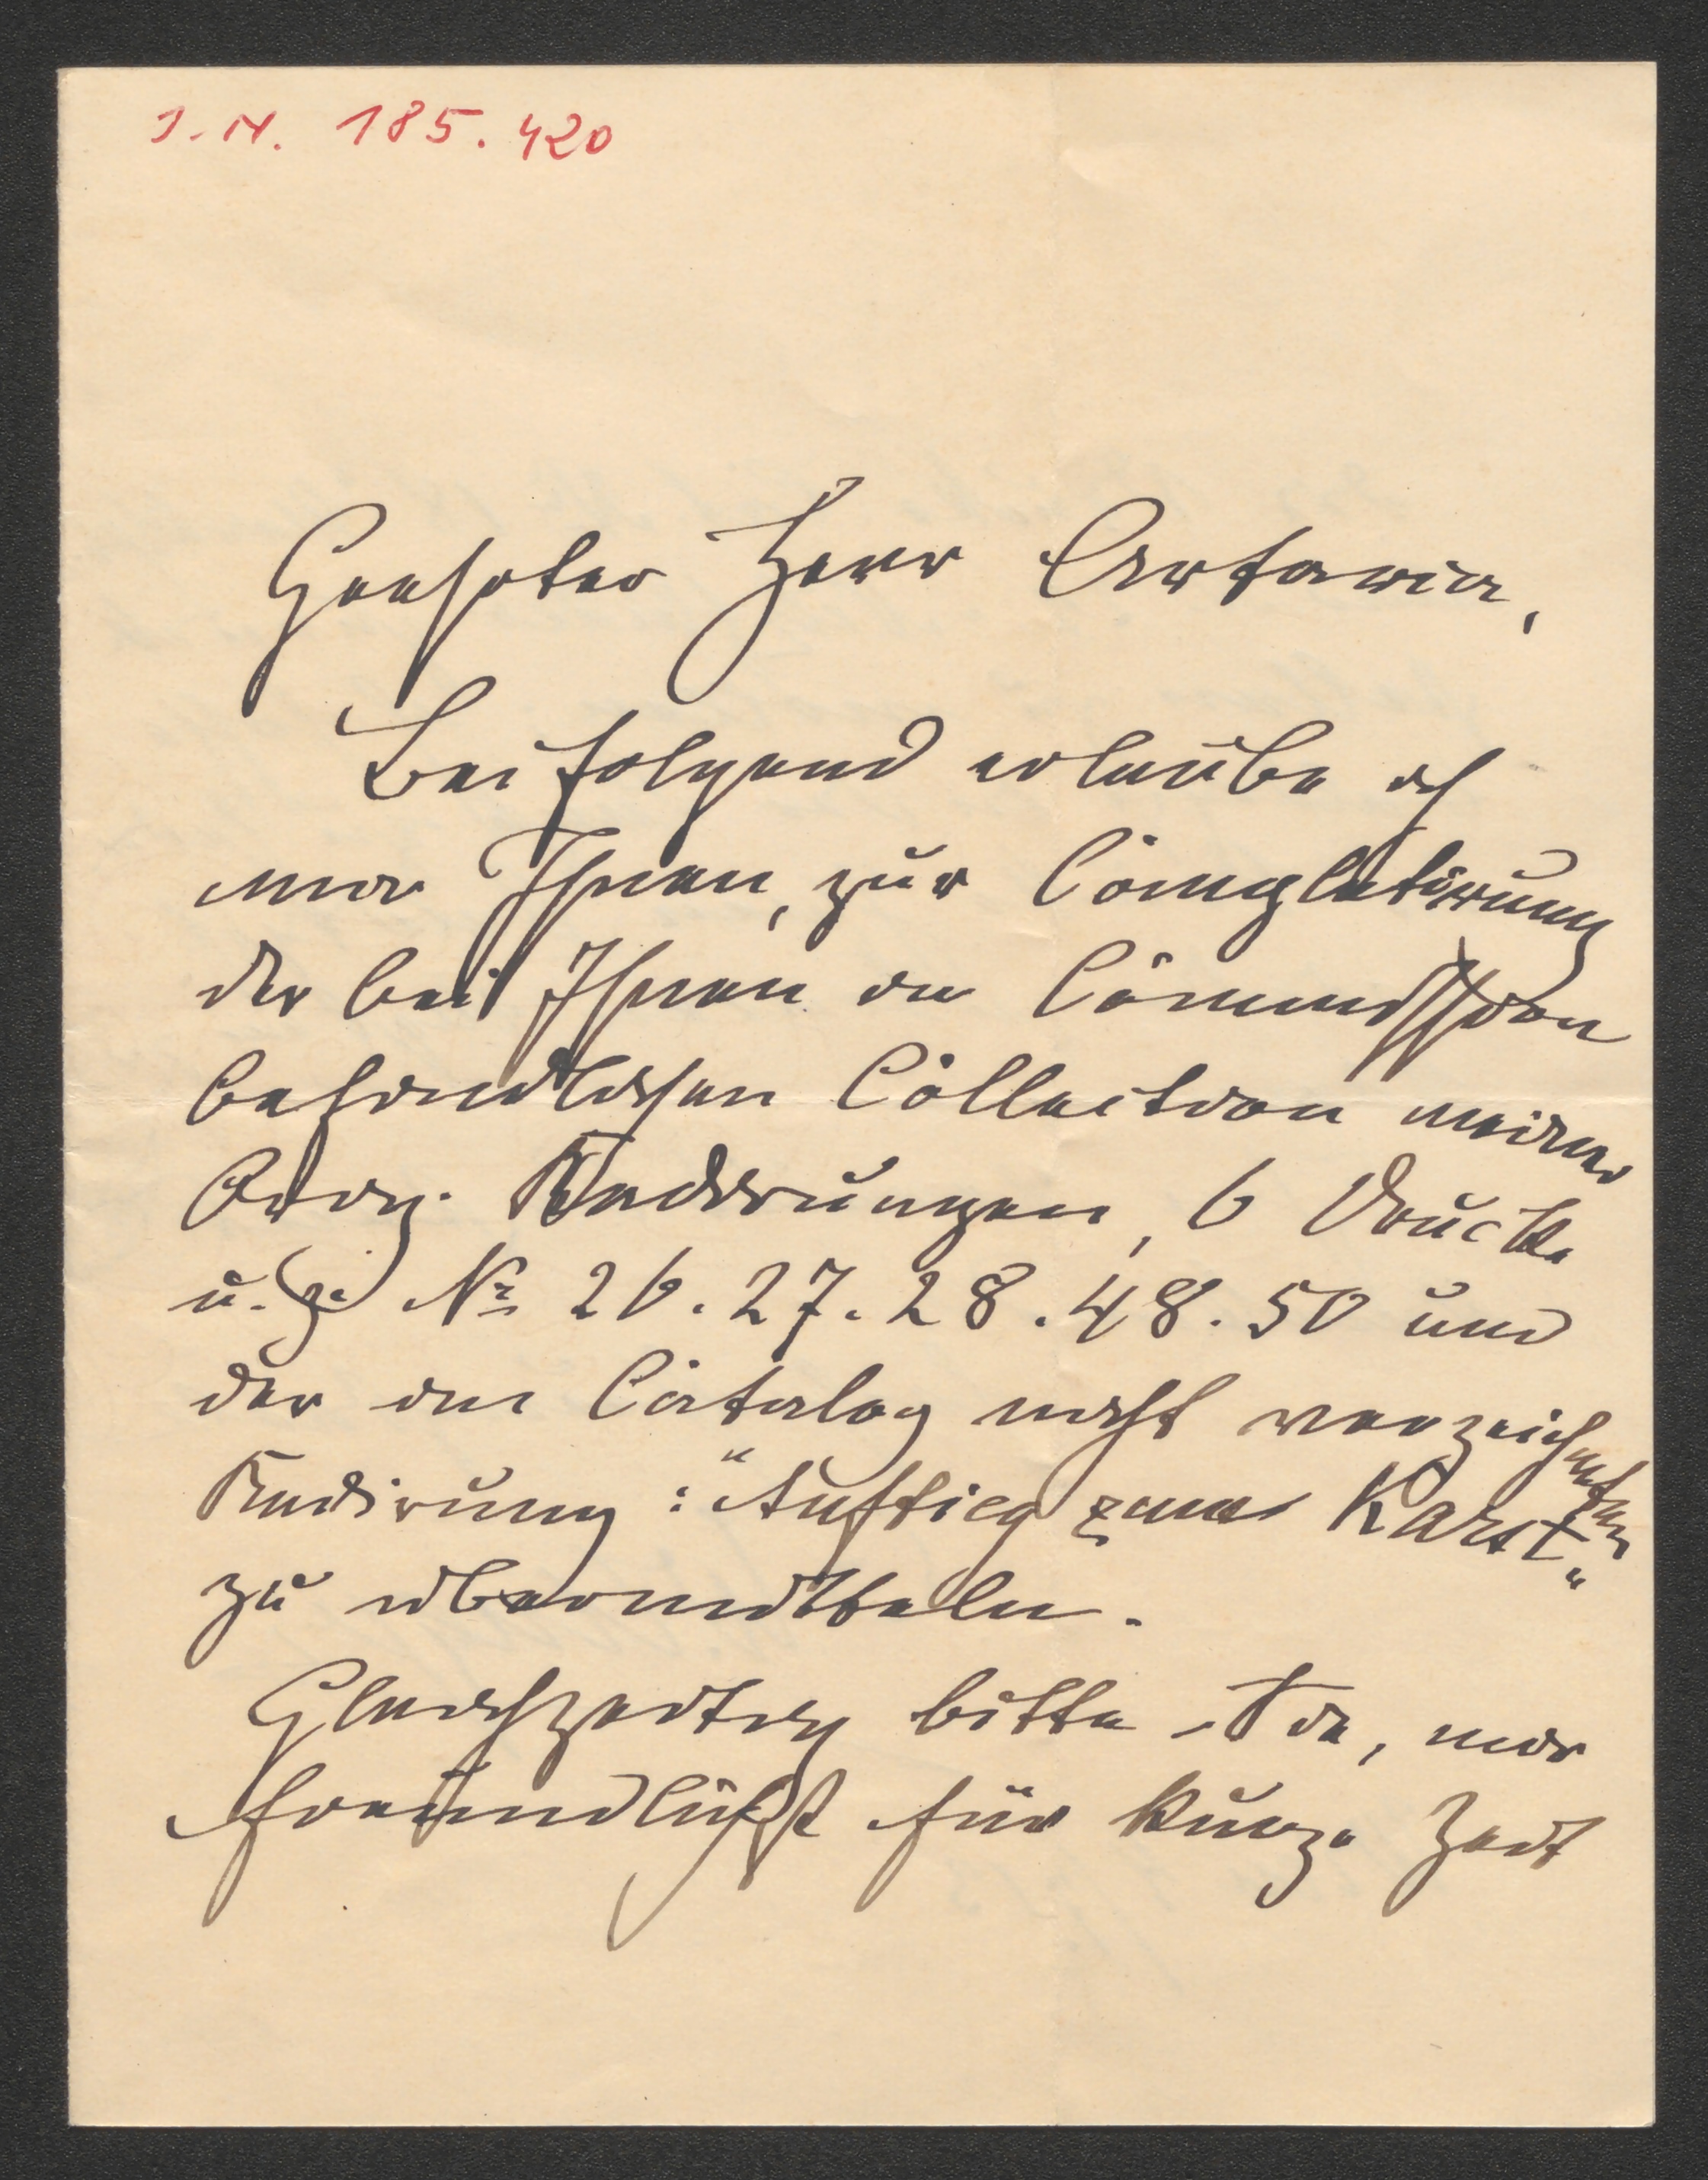 J. N. 185.420
Geehrter Herr Artaria,
Beifolgend erlaube ich
mir Ihnen, zur Completirung
der bei Ihnen in Commission
befindlichen Collection meiner
Orig. Radirungen, 6 Drucke
u. z. No 26. 27. 28. 48. 50 und
der im Catalog nicht verzeichneten
Radirung: "Aufstieg zum Karst"
zu übermitteln.
Gleichzeitig bitte Sie, mir
freundlichst für kurze Zeit